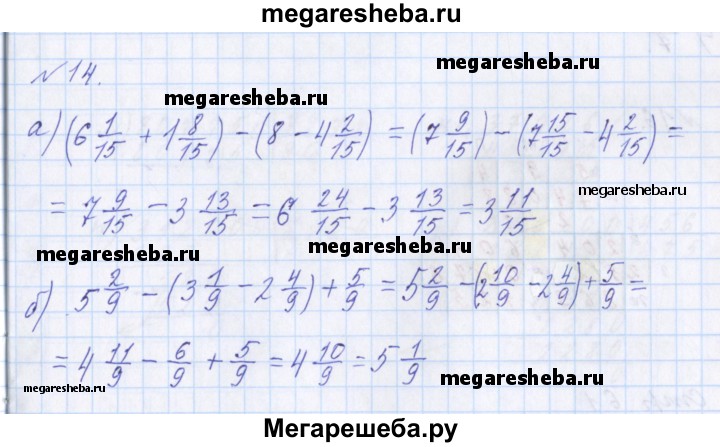 megaresheba.ru
№14.
megaresheba.ru
а) (6 1/15 + 1 8/15) - (8 - 4 2/15) = (7 9/15) - (7 15/15 - 4 2/15) =
megaresheba.ru
= 7 9/15 - 3 13/15 = 6 24/15 - 3 13/15 = 3 11/15
megaresheba.ru
megaresheba.ru
megaresheba.ru
б) 5 2/9 - (3 1/9 - 2 4/9) + 5/9 = 5 2/9 - (2 10/9 - 2 4/9) + 5/9 =
= 4 11/9 - 6/9 + 5/9 = 4 10/9 = 5 1/9
megaresheba.ru
megaresheba.ru
Мегарешеба.ру